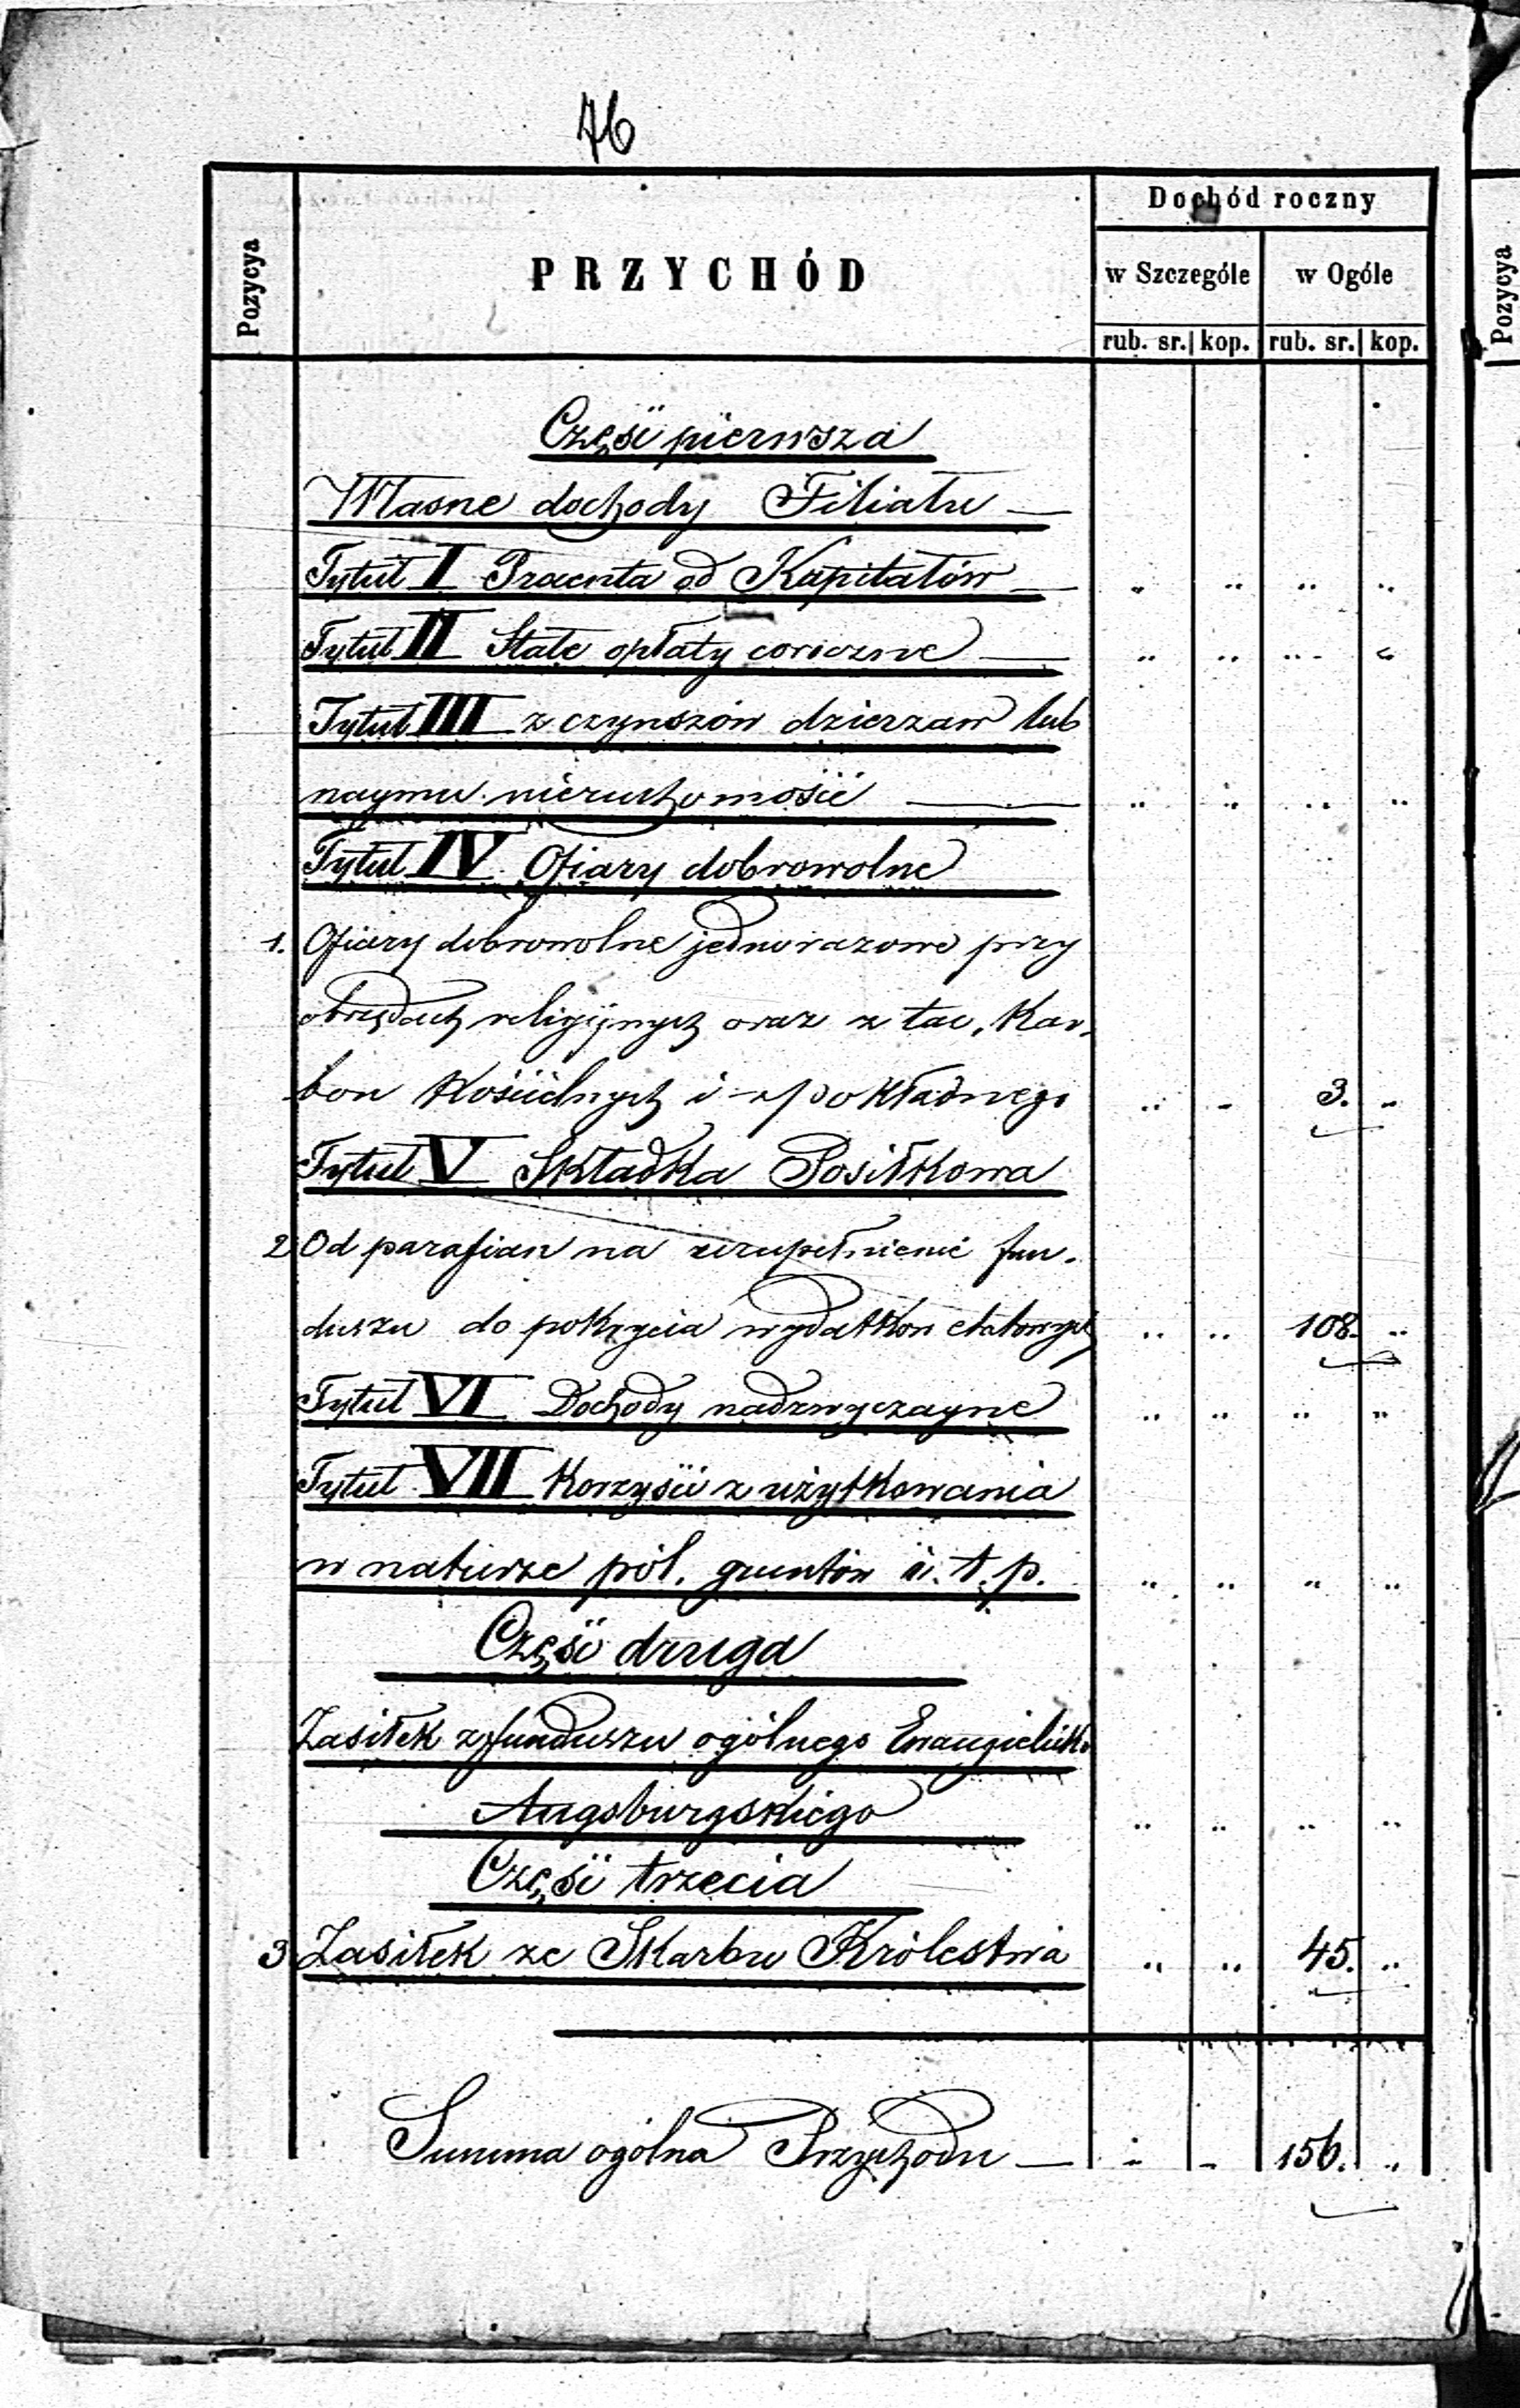 76
Pozycya
PRZYCHÓD
Dochód roczny
w Szczególe w Ogóle
rub. sr. kop. rub. sr. kop.
Część pierwsza
Własne dochody Filiału —
Tytuł I Procenta od Kapitałów — " " " "
Tytuł II Stałe opłaty coroczne — " " " "
Tytuł III z czynszów dzierzaw lub
naymu nieruchomości — " " " "
Tytuł IV Ofiary dobrowolne
1. Ofiary dobrowolne jednorazowe przy
obrzędach religijnych oraz z tac, Kar-
bon Kościelnych i pokładnego " " 3. "
Tytuł V Składka Posiłkowa
2 Od parafian na uzupełnienie fun-
duszu do pokrycia wydatków etatowych " " 108. "
Tytuł VI Dochody nadzwyczayne " " " "
Tytuł VII Korzyści z użytkowania
w naturze pól, gruntów i. t. p. " " " "
Część druga
Zasiłek z funduszu ogólnego Ewangielicko
Augsburgskiego " " " "
Część trzecia
3 Zasiłek ze Skarbu Królestwa " " 45. "
Summa ogólna Przychodu — " " 156. "
Pozycya